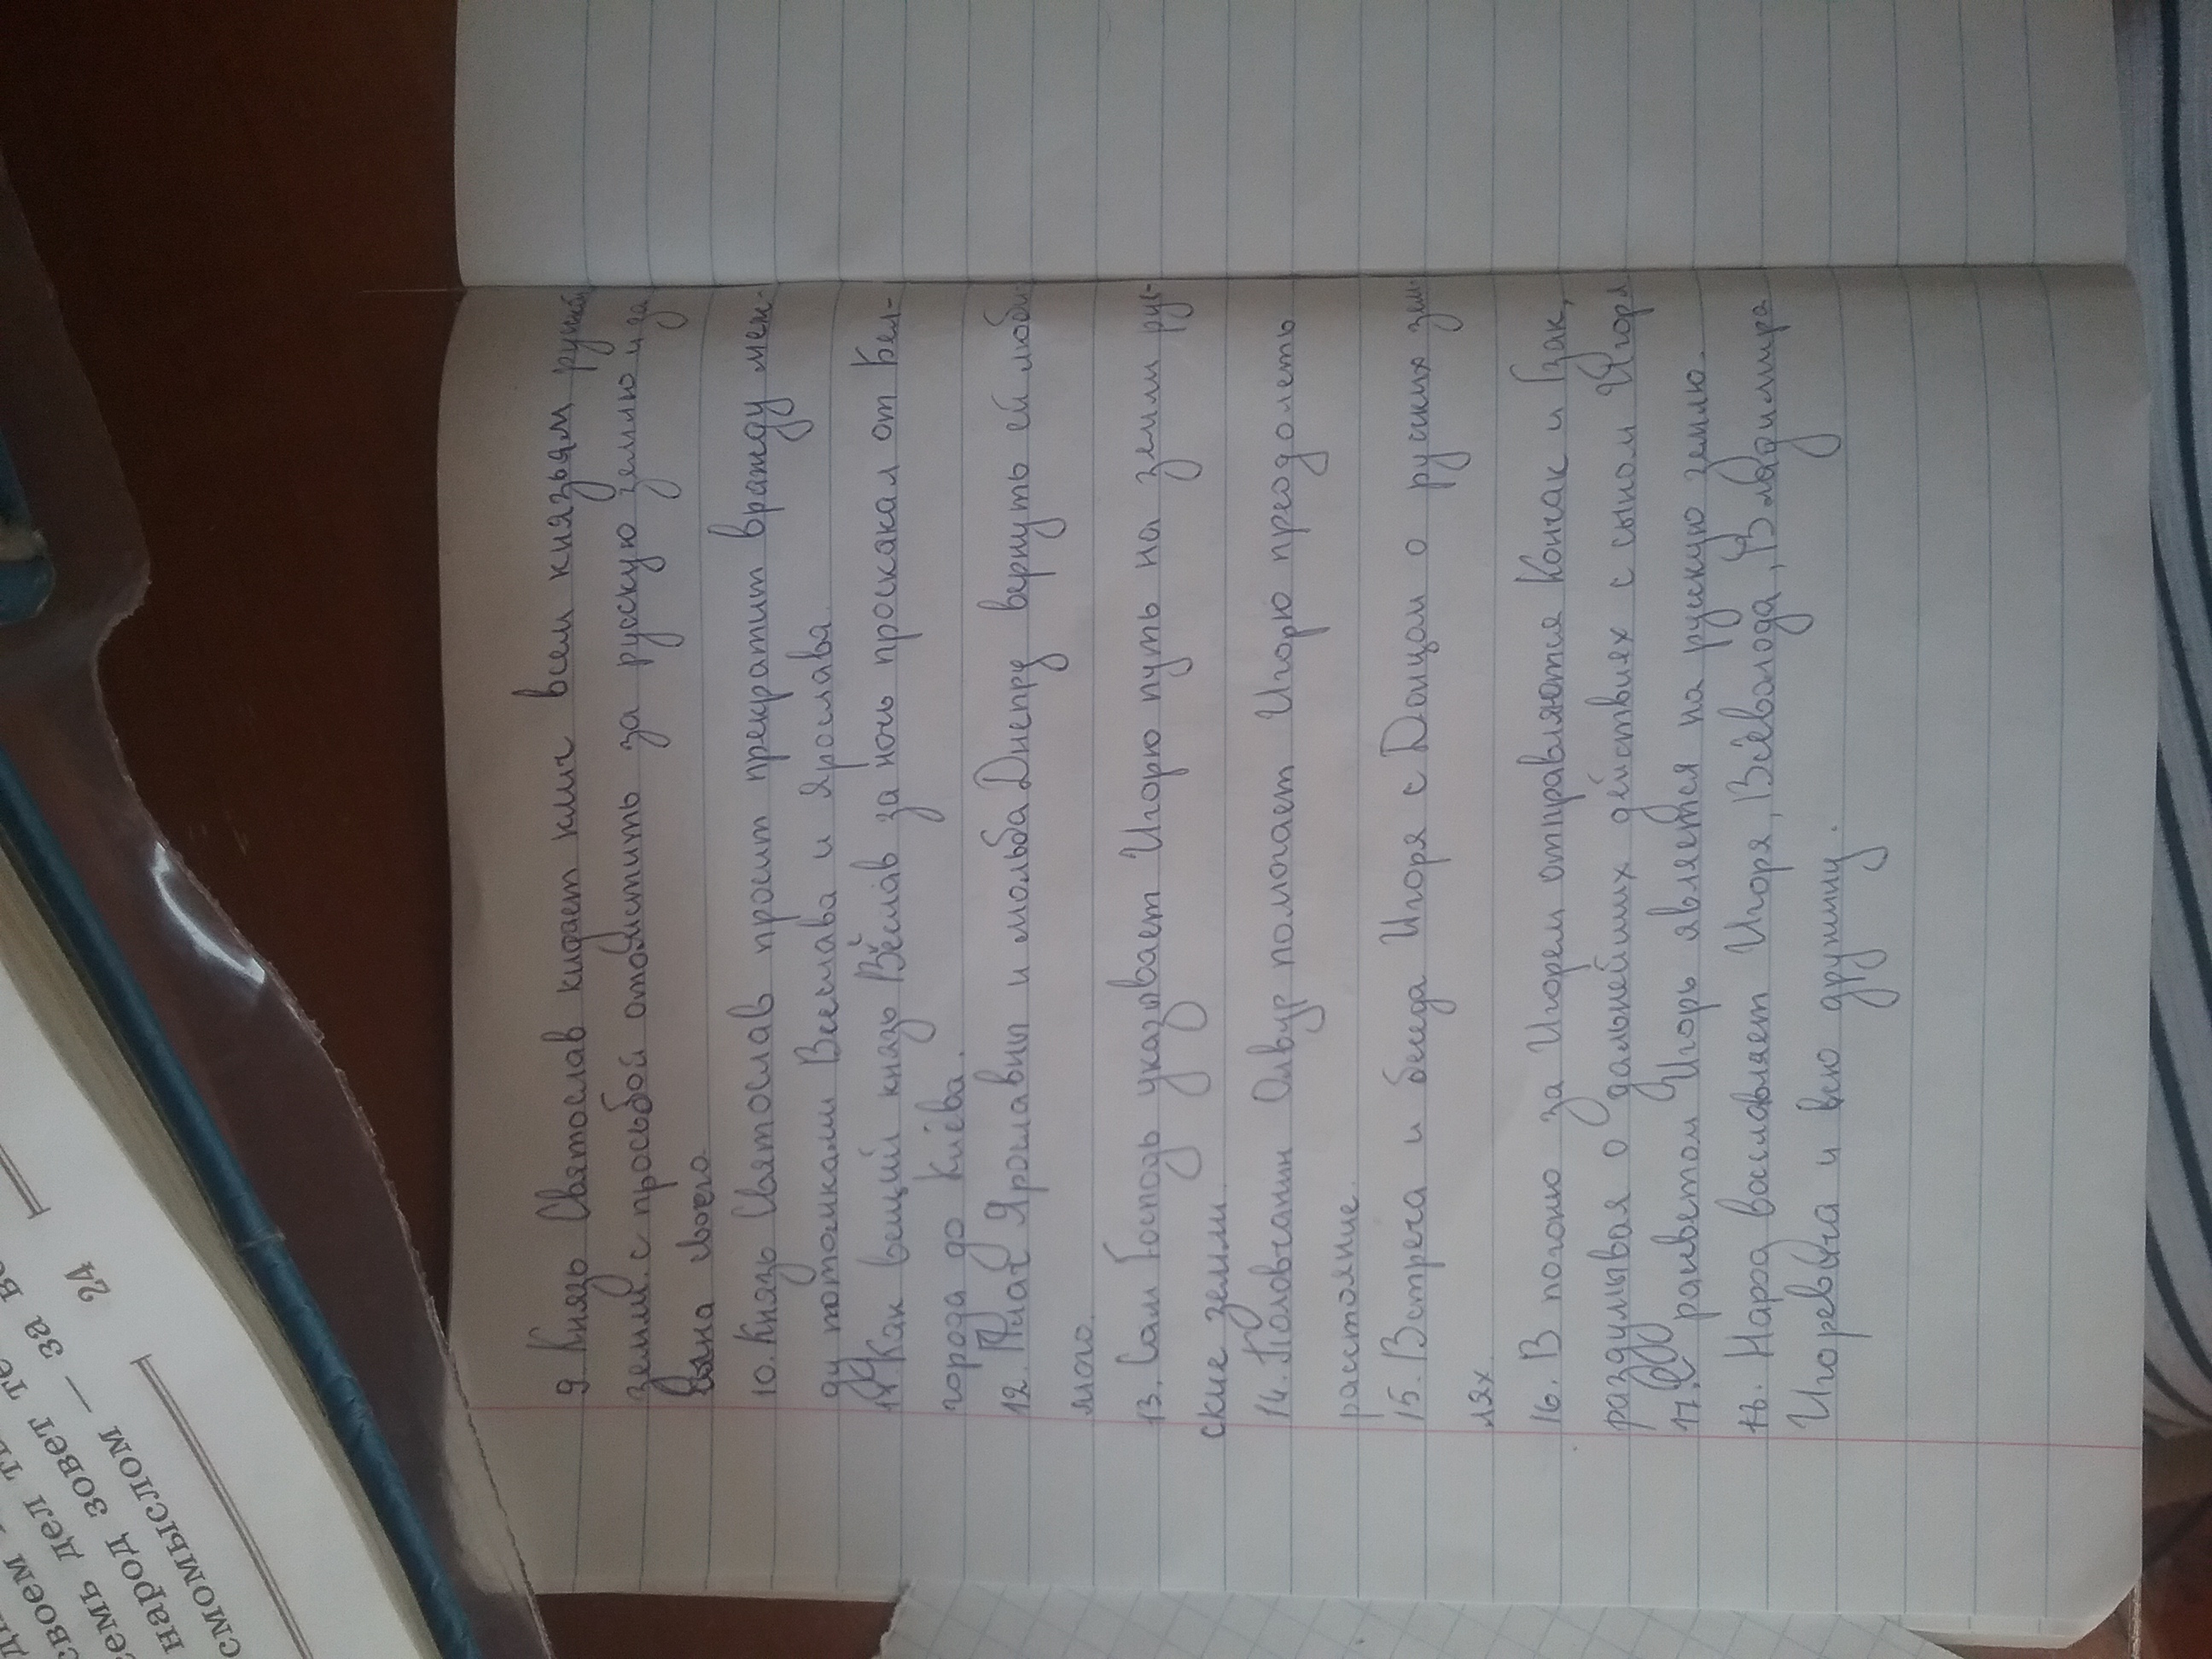 9. Князь Святослав кидает клич всем князьям руской
земли. с просьбой отомстить за рускую землю и за
сына своего.
10. Князь Святослав просит прекратит вражду меж-
ду потомками Всеслава и Ярослава.
11. Как вещий князь Всеслав за ночь проскакал от Бел-
города до Киева.
12. Плач Ярославны и мольба Днепру вернуть ей люби-
мого.
13. Сам Господь указывает Игорю путь на земли рус-
ские земли.
14. Половчанин Овлур помогает Игорю преодолеть
расстояние.
15. Встреча и беседа Игоря с Донцом о руских зем-
лях.
16. В погоню за Игорем отправляются Кончак и Гзак,
раздумывая о дальнейших действиях с сыном Игоря
17. С рассветом Игорь является на русскую землю.
18. Народ васславляет Игоря, Всеволода, Владимира
Игоревича и всю дружину.
24
народ зовет
семь дел
своем
смомыслом — за